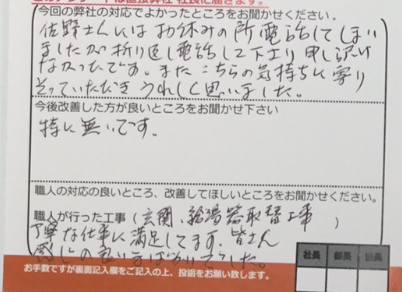 このアンケートは直接弊社 社長に届きます。
今回の弊社の対応でよかったところをお聞かせください。
佐野さんにはお休みの所電話してしまい
ましたが折り返し電話して下さり申し訳け
なかったです。またこちらの気持ちに寄り
そっていただきうれしく思いました。
今後改善した方が良いところをお聞かせ下さい
特に無いです。
職人の対応の良いところ、改善してほしいところをお聞かせください。
職人が行った工事(玄関、給湯器取替工事)
丁寧な仕事に満足してます。皆さん
感じの良い
社長 部長 部長
お手数ですが裏面記入欄をご記入の上、投函をお願い致します。